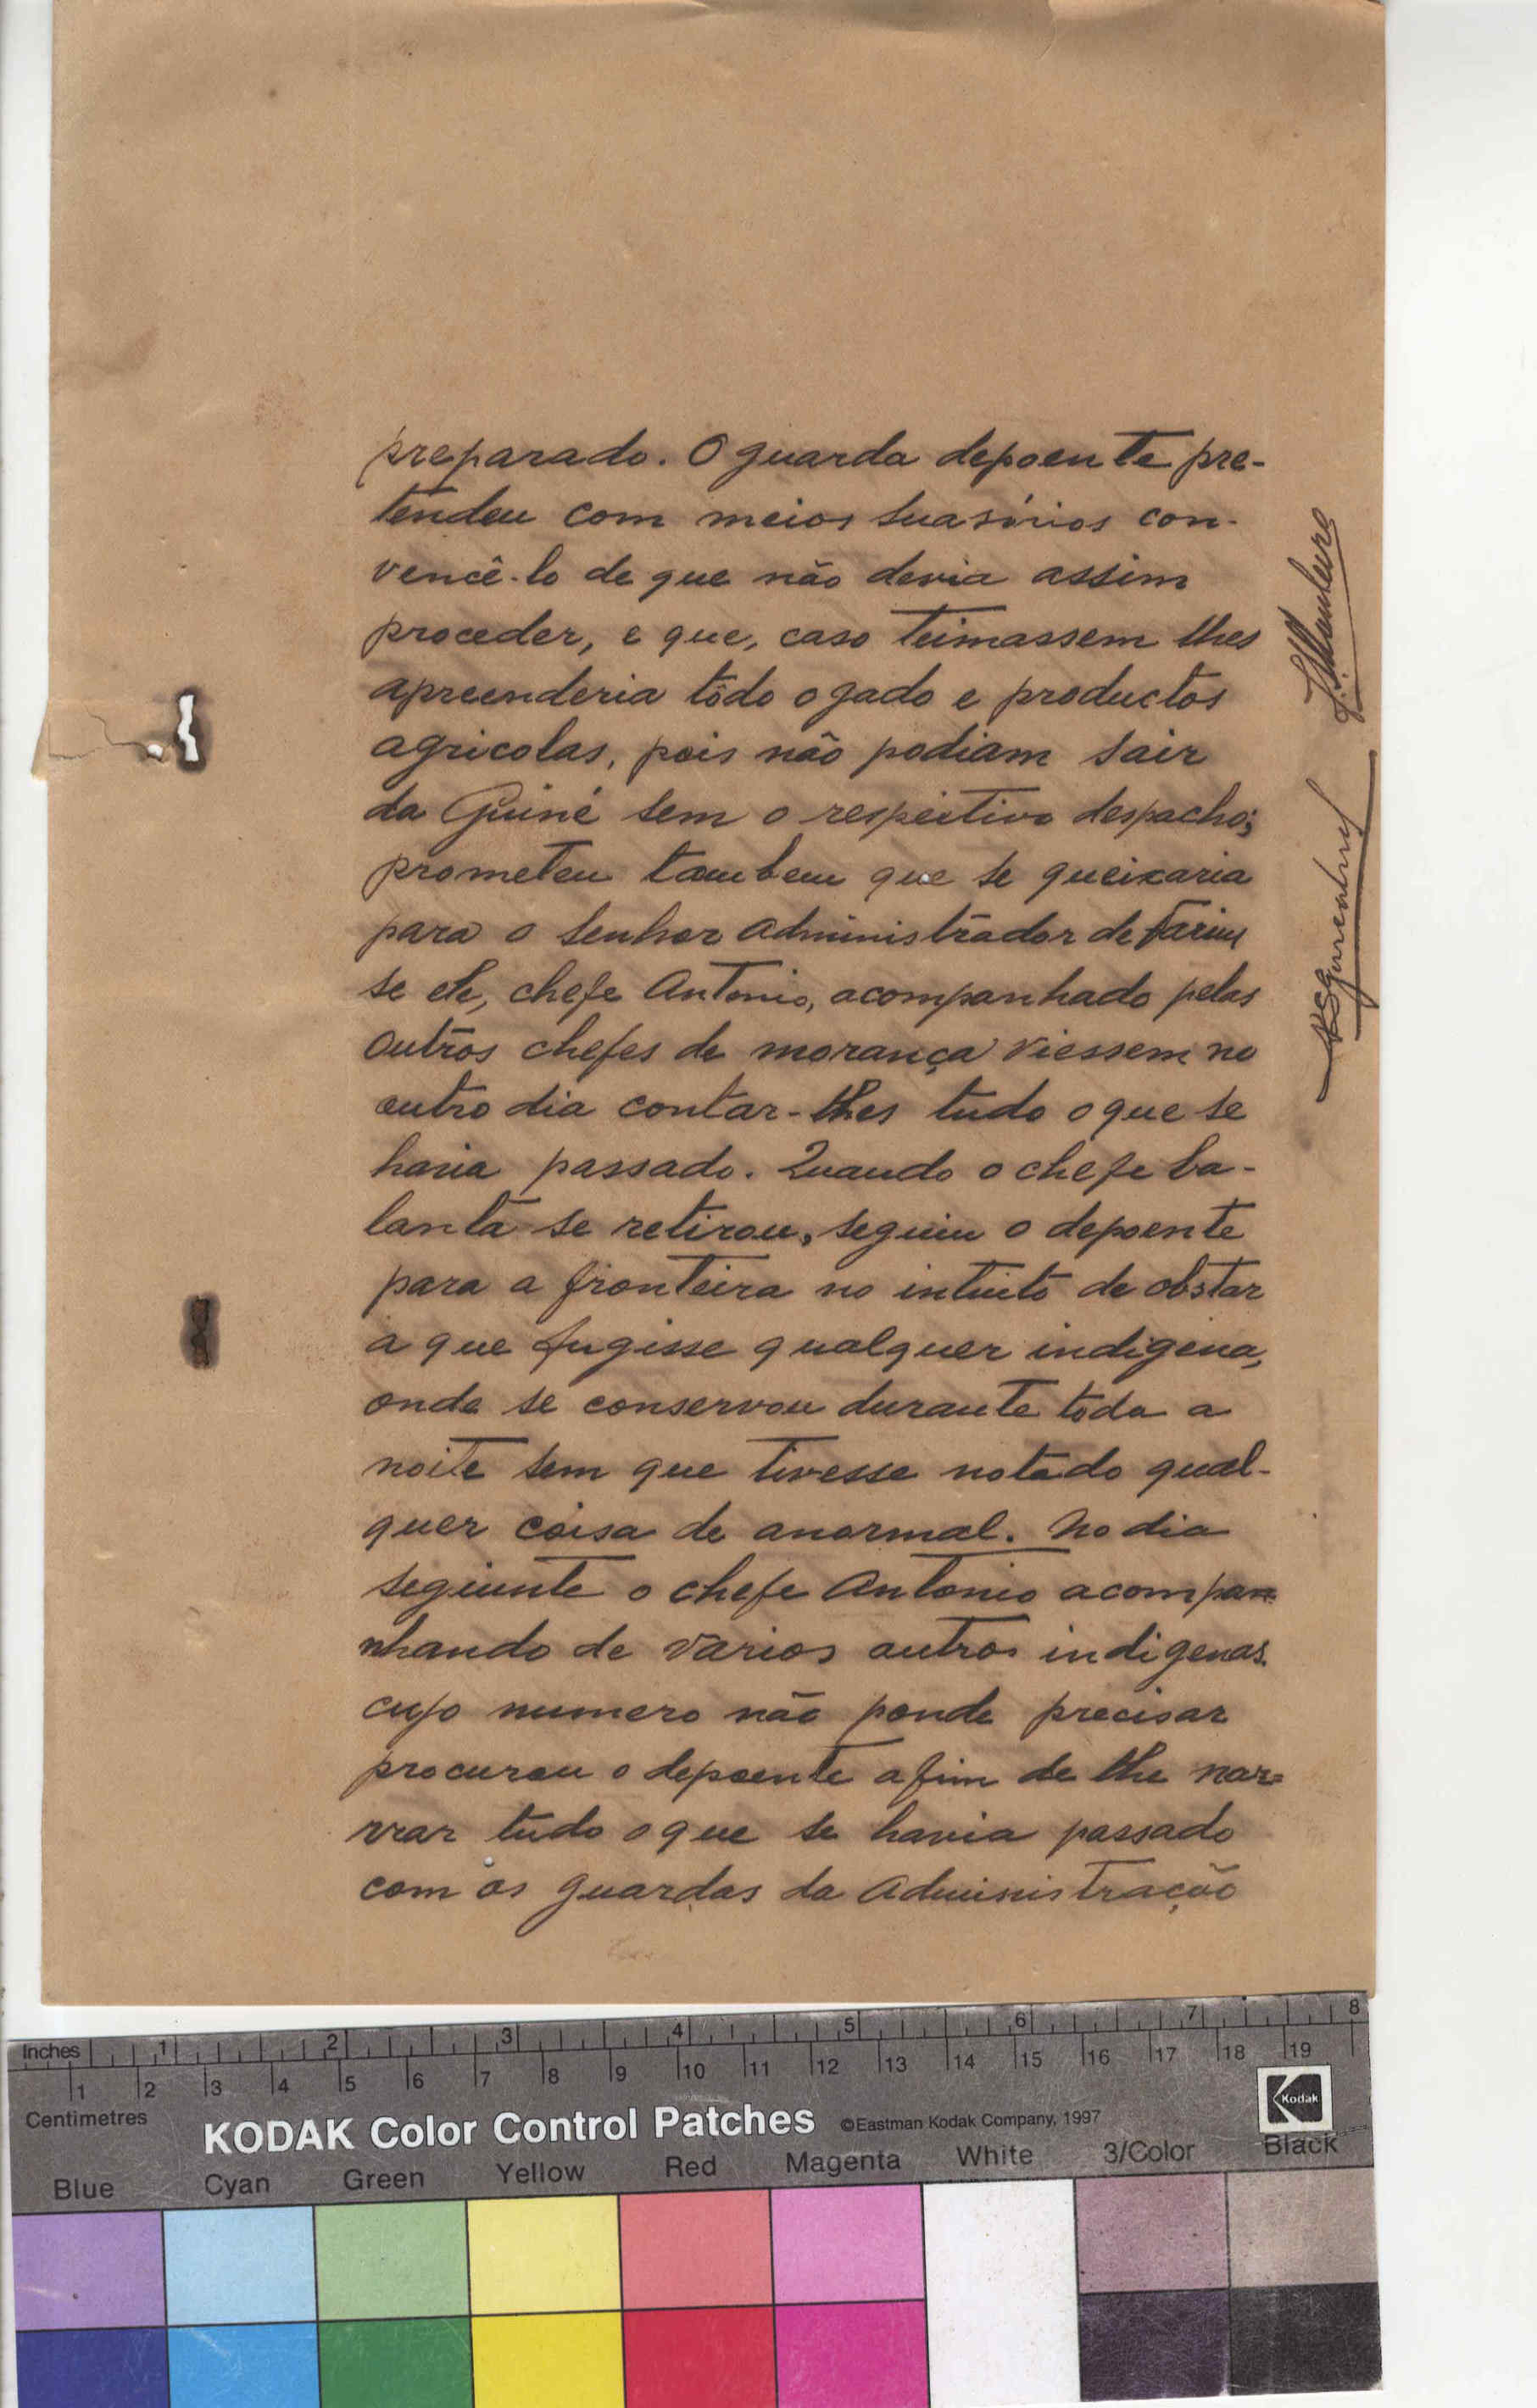 preparado. O guarda depoente pre-
tendeu com meios suasórios con-
vencê-lo de que não devia assim
proceder, e que, caso teimassem lhes
apreenderia tôdo o gado e productos
agricolas, pois não podiam sair
da Guiné sem o respeitivo despacho;
prometeu tambem que se queixaria
para o Senhor Administrador de Farim
se ele, chefe Antonio, acompanhado pelos
outros chefes de morança viessem no
outro dia contar-lhes tudo o que se
havia passado. Quando o chefe ba-
lanta se retirou, seguiu o depoente
para a fronteira no intuito de obstar
a que fugisse qualquer indigena,
onde se conservou durante toda a
noite sem que tivesse notado qual-
quer coisa de anormal. No dia
seguinte o chefe Antonio acompan-
nhando de varios outros indigenas
cujo numero não ponde precisar
procurou o depoente afim de lhe nar=
rrar tudo o que se havia passado
com os guardas da Administração
Inches 1 2 3 4 5 6 7 8
1 2 3 4 5 6 7 8 9 10 11 12 13 14 15 16 17 18 19
Centimetres
KODAK Color Control Patches ©Eastman Kodak Company, 1997 Kodak
Blue Cyan Green Yellow Red Magenta White 3/Color Black